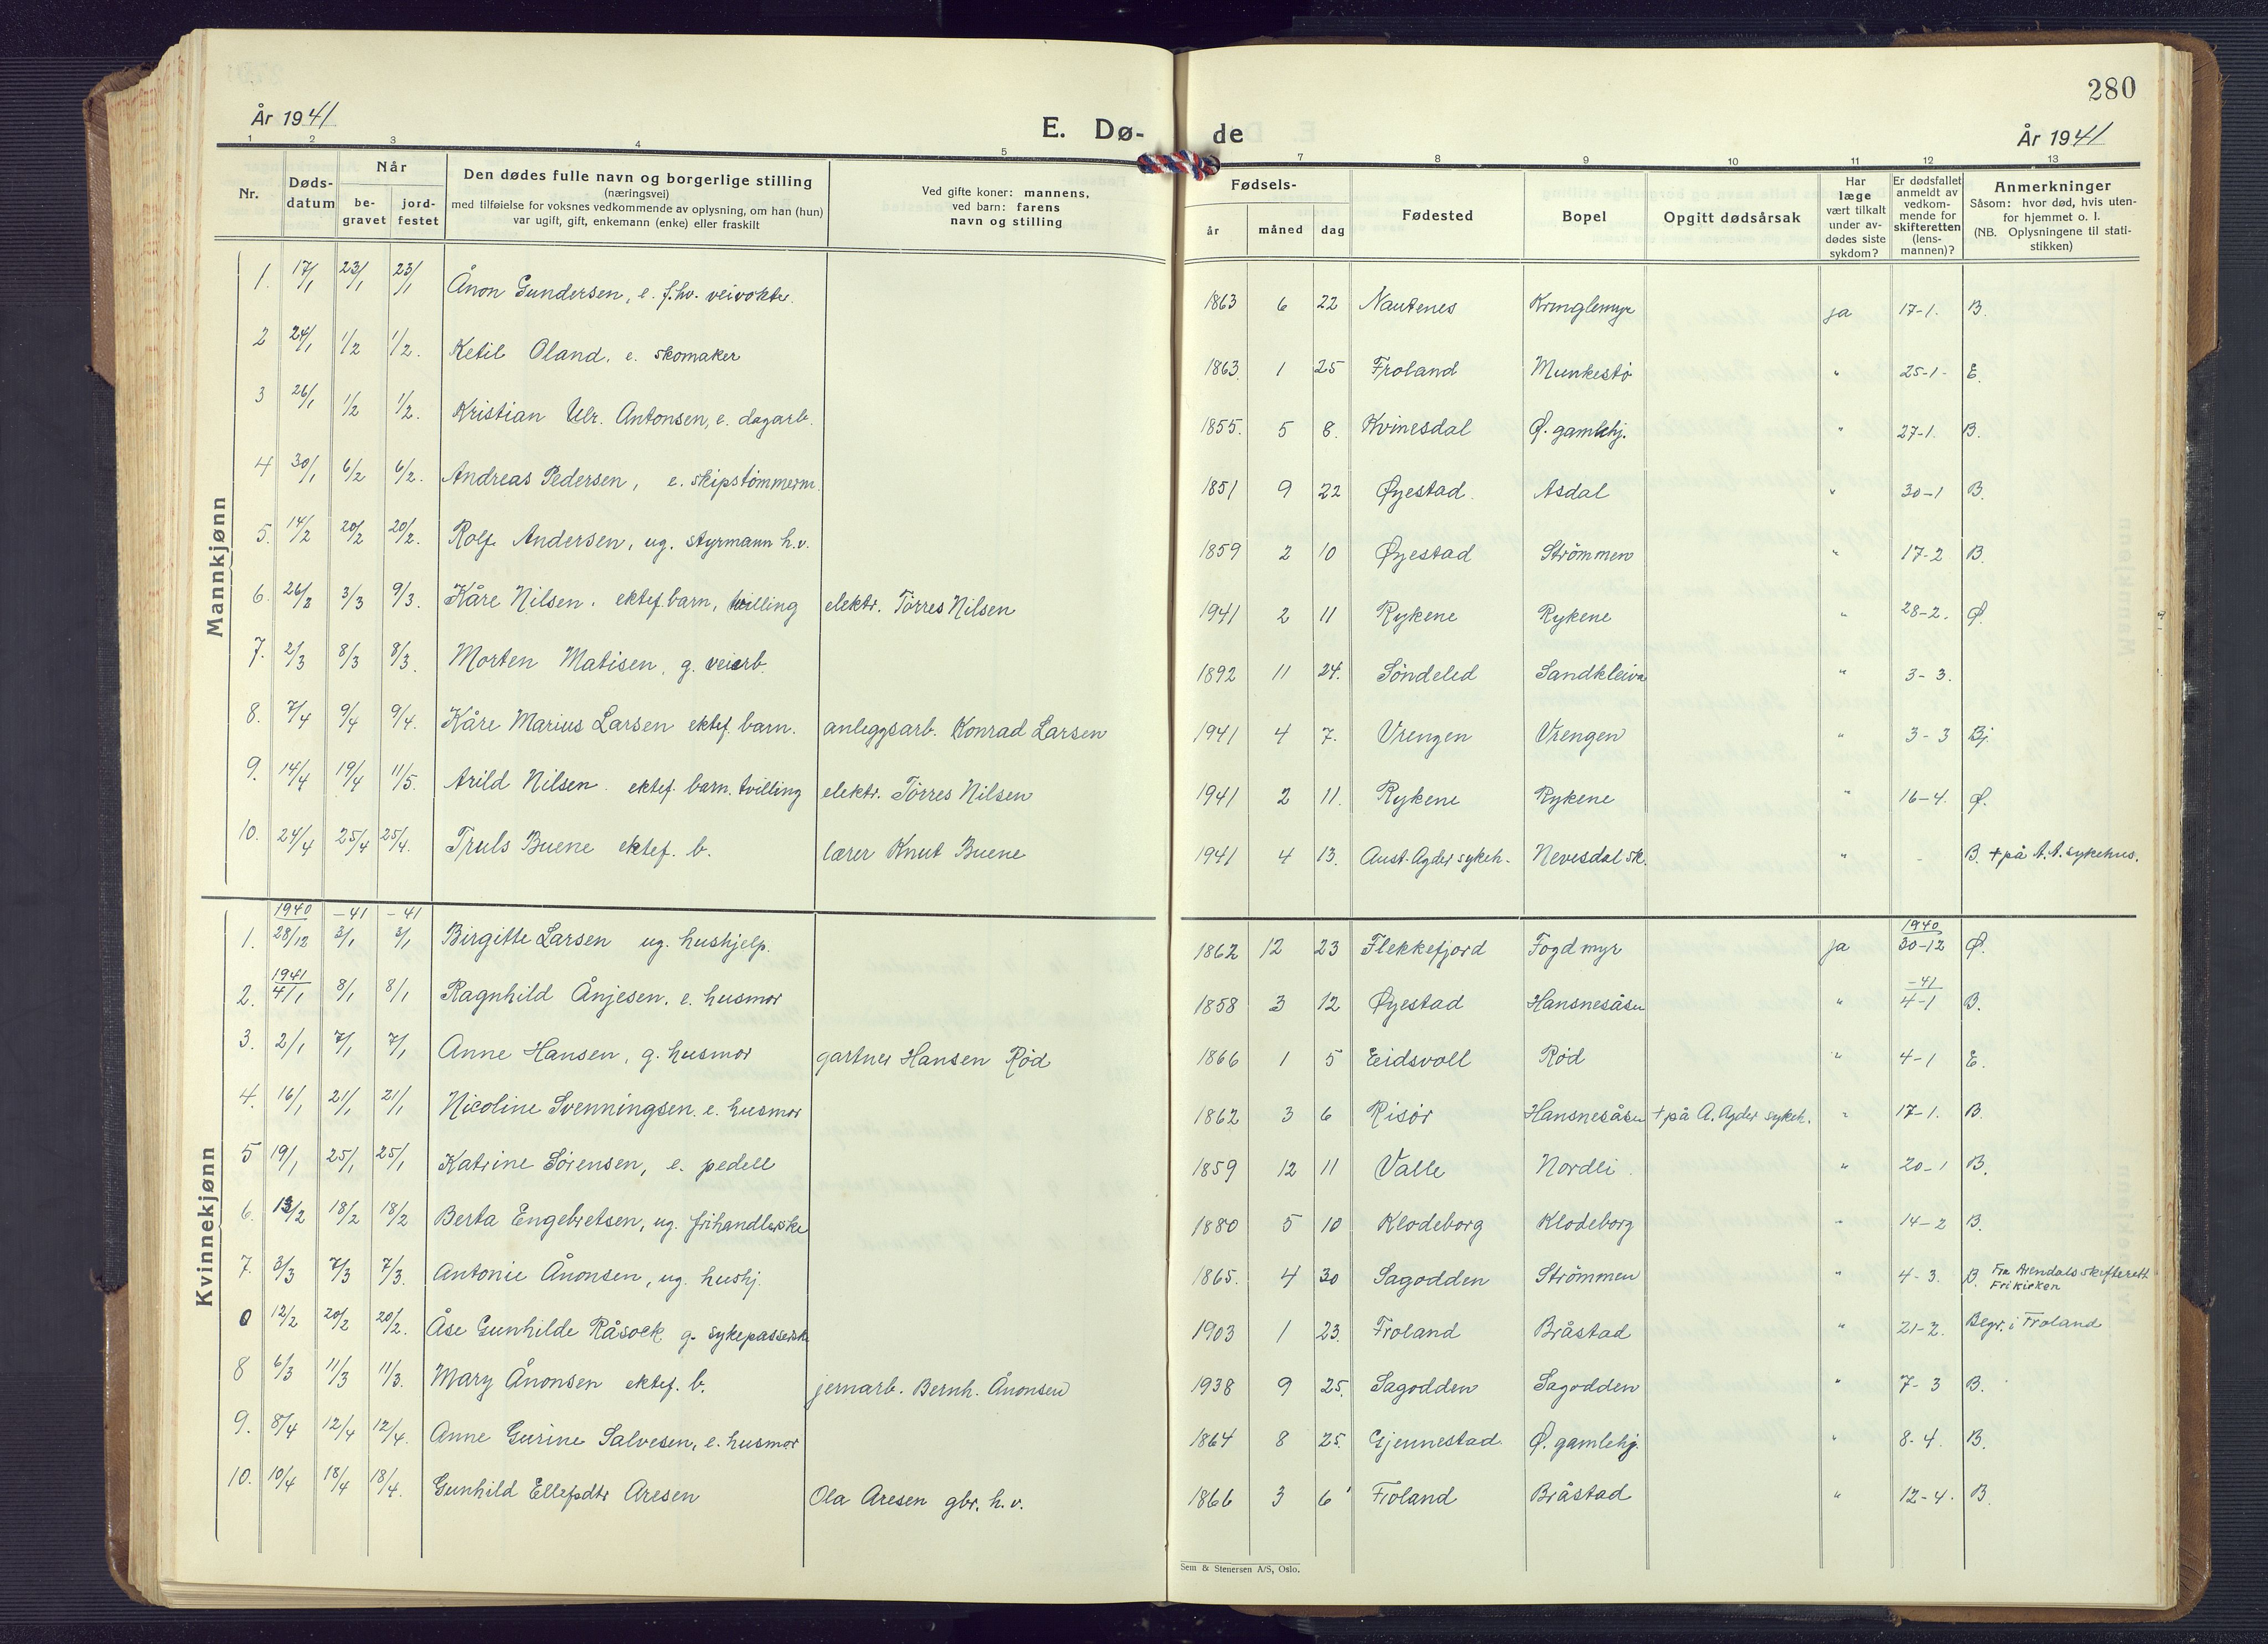 280
År 1941
E. Dø- de
År 1941
1 2 3 4 5 7 8 9 10 11 12 13
Nr.
Døds-
datum
Når
be-
gravet
jord-
festet
Den dødes fulle navn og borgerlige stilling
(næringsvei)
med tilføielse for voksnes vedkommende av oplysning, om han (hun)
var ugift, gift, enkemann (enke) eller fraskilt
Ved gifte koner: mannens,
ved barn: farens
navn og stilling
Fødsels-
år måned dag
Fødested
Bopel
Opgitt dødsårsak
Har
læge
vært tilkalt
under av-
dødes siste
sykdom?
Er dødsfallet
anmeldt av
vedkom-
mende for
skifteretten
(lens-
mannen)?
Anmerkninger
Såsom: hvor død, hvis uten-
for hjemmet o. l.
(NB. Oplysningene til stati-
stikken)
Mannkjønn
1. 17/1 23/1 23/1 Ånon Gundersen, e. f.hv. veivokter. 1863 6 22 Nautenes Kringlemyr ja 17-1. B.
2 24/1 1/2 1/2. Ketil Oland, e. skomaker 1863. 1 25 Froland Munkestø " 25-1- E.
3 26/1 1/2 1/2. Kristian Ulr. Antonsen, e. dagarb. 1855. 5 8. Kvinesdal Ø. gamlehj. " 27-1. B.
4 30/1 6/2 6/2. Andreas Pedersen, e. skipstømmerm. 1851 9 22 Øyestad. Asdal " 30-1 B.
5. 14/2 20/2 20/2. Rolf Andersen, ug. styrmann h.v. 1859 2 10 Øyestad Strömmen " 17-2 B.
6. 26/2 3/3 9/3. Kåre Nilsen. ektef. barn, tvilling elektr. Törres Nilsen 1941 2 11 Rykene Rykene " 28-2. Ø.
7. 2/3 8/3 8/3. Morten Matisen, g. veiarb. 1892 11 24. Söndeled Sandkleiva " 3-3.
8. 7/4 9/4 9/4. Kåre Marius Larsen ektef. barn. anleggsarb. Konrad Larsen 1941 4 7. Vrengen Vrengen " 3-3 Bj.
9. 14/4 19/4 11/5. Arild Nilsen. ektef. barn. tvilling elektr. Törres Nilsen 1941 2 11. Rykene Rykene " 16-4. Ø.
10. 24/4 25/4 25/4. Truls Buene ektef. b. lærer Knut Buene 1941 4 13. Aust-Agder sykeh. Nevesdal sk. " - B. + på A.A. sykehus.
Kvinnekjønn
1940 -41 -41 1940
1. 28/12 3/1 3/1 Birgitte Larsen ug. hushjelp. 1862 12 23 Flekkefjord Fogdmyr ja 30-12 Ø.
1941 -41
2. 4/1 8/1 8/1 Ragnhild Ånjesen. e. husmor 1858 3 12 Øyestad Hansnesåsen " 4-1 B.
3. 2/1 7/1 7/1 Anne Hansen, g. husmor gartner Hansen Rød 1866 1 5 Eidsvoll Rød " 4-1 E.
4. 16/1 21/1 21/1 Nicoline Svenningsen. e. husmor 1862 3 6 Risör Hansnesåsen + på A. Agder sykeh. " 17-1. B.
5 19/1 25/1 25/1 Katrine Sörensen, e. pedell 1859 12 11 Valle Nordli. " 20-1 B.
6. 13/2 18/2 18/2 Berta Engebretsen, ug. frihandlerske 1880 5 10 Klodeborg Klodeborg " 14-2 B.
7. 3/3 7/3 7/3. Antonie Ånonsen, ug. hushj. 1865. 4 30 Sagodden Strömmen " 4-3. B. Fra Arendals skifterett
Frikirken
0 12/2 20/2 20/2. Åse Gunhilde Råsoek g. sykepasserske 1903 1 23. Froland Bråstad " 21-2. Begr. i Froland
8 6/3 11/3 11/3. Mary Ånonsen ektef. b. jernarb. Bernh. Ånonsen 1938 9 25. Sagodden Sagodden " 7-3 B.
9. 8/4 12/4 12/4. Anne Gurine Salvesen, e. husmor 1864 8 25. Gjennestad Ø. gamlehj. " 8-4. B.
10. 10/4 18/4 18/4. Gunhild Ellefsdtr Aresen Ola Aresen gbr. h.v. 1866 3 6 Froland Bråstad " 12-4. B.
Sem & Stenersen A/S, Oslo.